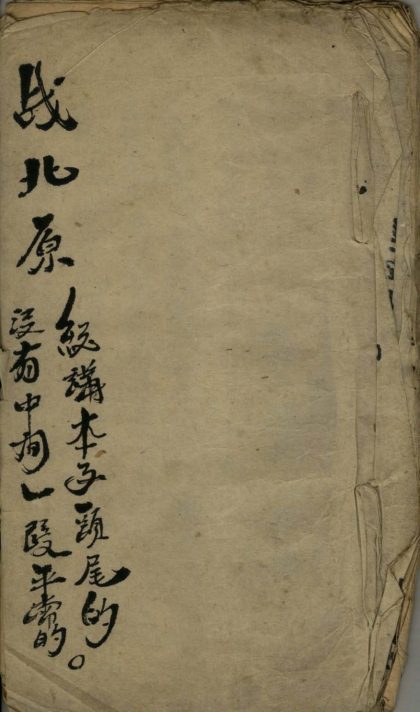 战北原
統講本子頭尾的
没有中间一段平常的。